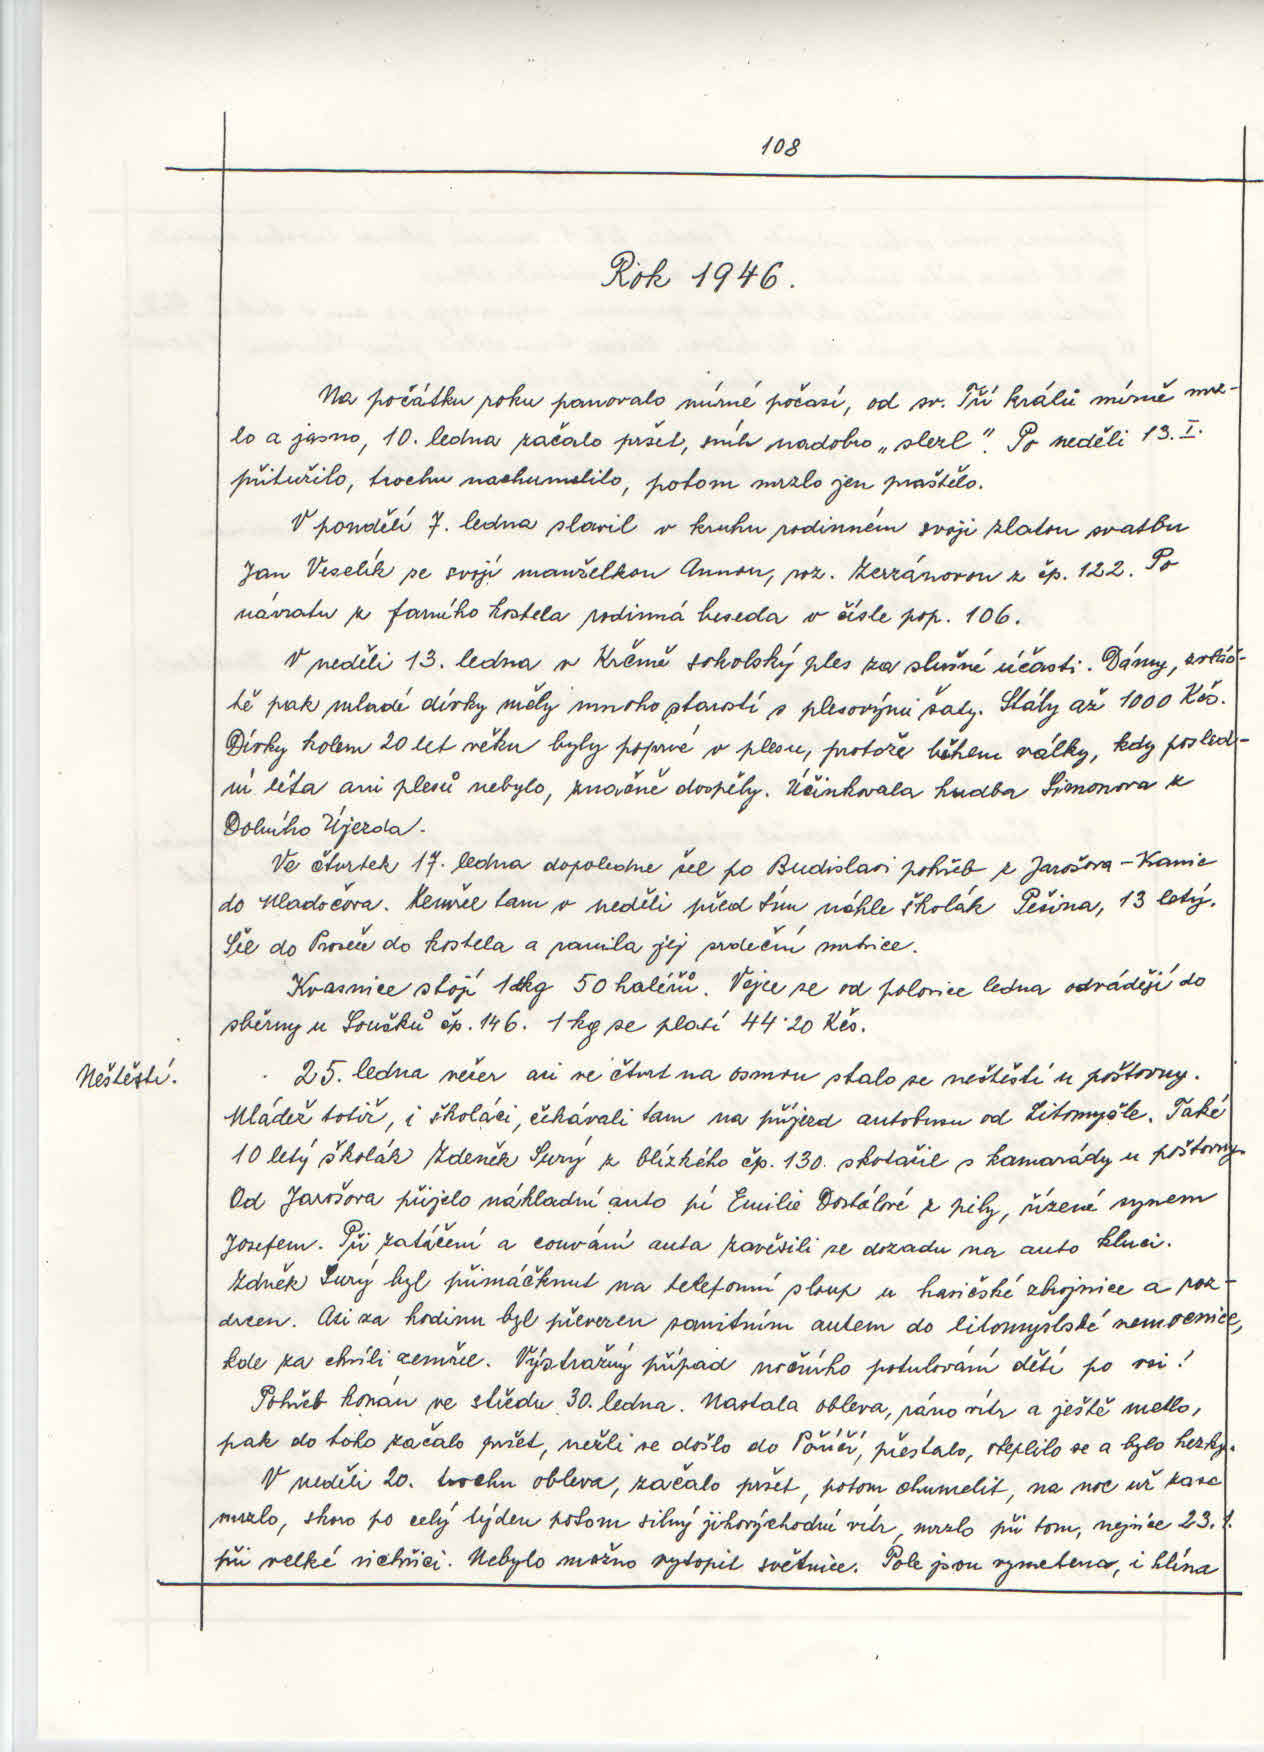 108
Rok 1946.
Na počátku roku panovalo mírné počasí, od sv. Tří králů mírně mrz-
lo a jasno, 10. ledna začalo pršet, sníh nadobro „slezl“. Po neděli 13. I.
přitužilo, trochu nachumelilo, potom mrzlo jen praštělo.
V pondělí 7. ledna slavil v kruhu rodinném svoji zlatou svatbu
Jan Veselík se svojí manželkou Annou, roz. Zerzánovou z čp. 122. Po
návratu z farního kostela rodinná beseda v čísle pop. 106.
V neděli 13. ledna v Krčmě sokolský ples za slušné účasti. Dámy, zvláš-
tě pak mladé dívky měly mnoho starostí s plesovými šaty. Stály až 1000 Kčs.
Dívky kolem 20 let věku byly poprvé v plesu, protože během války, kdy posled-
ní léta ani plesů nebylo, značně dospěly. Účinkovala hudba Simonova z
Dolního Újezda.
Ve čtvrtek 17. ledna dopoledne šel po Budislavi pohřeb z Jarošova - Kamie
do Mladočova. Zemřel tam v neděli před tím náhle školák Pešina, 13 letý.
Šel do Proseče do kostela a ranila jej srdeční mrtvice.
Kvasnice stojí 1 dkg 50 haléřů. Vejce se od polovice ledna odvádějí do
sběrny u Součků čp. 146. 1 kg se platí 44·20 Kčs.
Neštěstí.
25. ledna večer asi ve čtvrt na osmou stalo se neštěstí u poštovny.
Mládež totiž, i školáci, čekávali tam na příjezd autobusu od Litomyšle. Také
10 letý školák Zdeněk Surý z blízkého čp. 130. skotačil s kamarády u poštovny.
Od Jarošova přijelo nákladní auto pí Emilie Dostálové z pily, řízené synem
Josefem. Při zatáčení a couvání auta zavěsili se dozadu na auto kluci.
Zdněk Surý byl přimáčknut na telefonní sloup u hasičské zbrojnice a roz-
drcen. Asi za hodinu byl převezen sanitním autem do litomyšlské nemocnice,
kde za chvíli zemřel. Výstražný případ nočního potulování dětí po vsi!
Pohřeb konán ve středu 30. ledna. Nastala obleva, ráno vítr a ještě metlo,
pak do toho začalo pršet, nežli se došlo do Poříčí, přestalo, oteplilo se a bylo hezky.
V neděli 20. trochu obleva, začalo pršet, potom chumelit, na noc už zase
mrzlo, skoro po celý týden potom silný jihovýchodní vítr, mrzlo při tom, nejvíce 23. 1.
při velké vichřici. Nebylo možno vytopit světnice. Pole jsou vymetena, i hlína